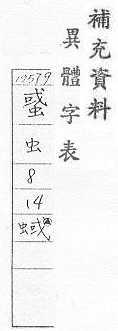 補充資料
異體字表
12579
虫
8
14
蜮